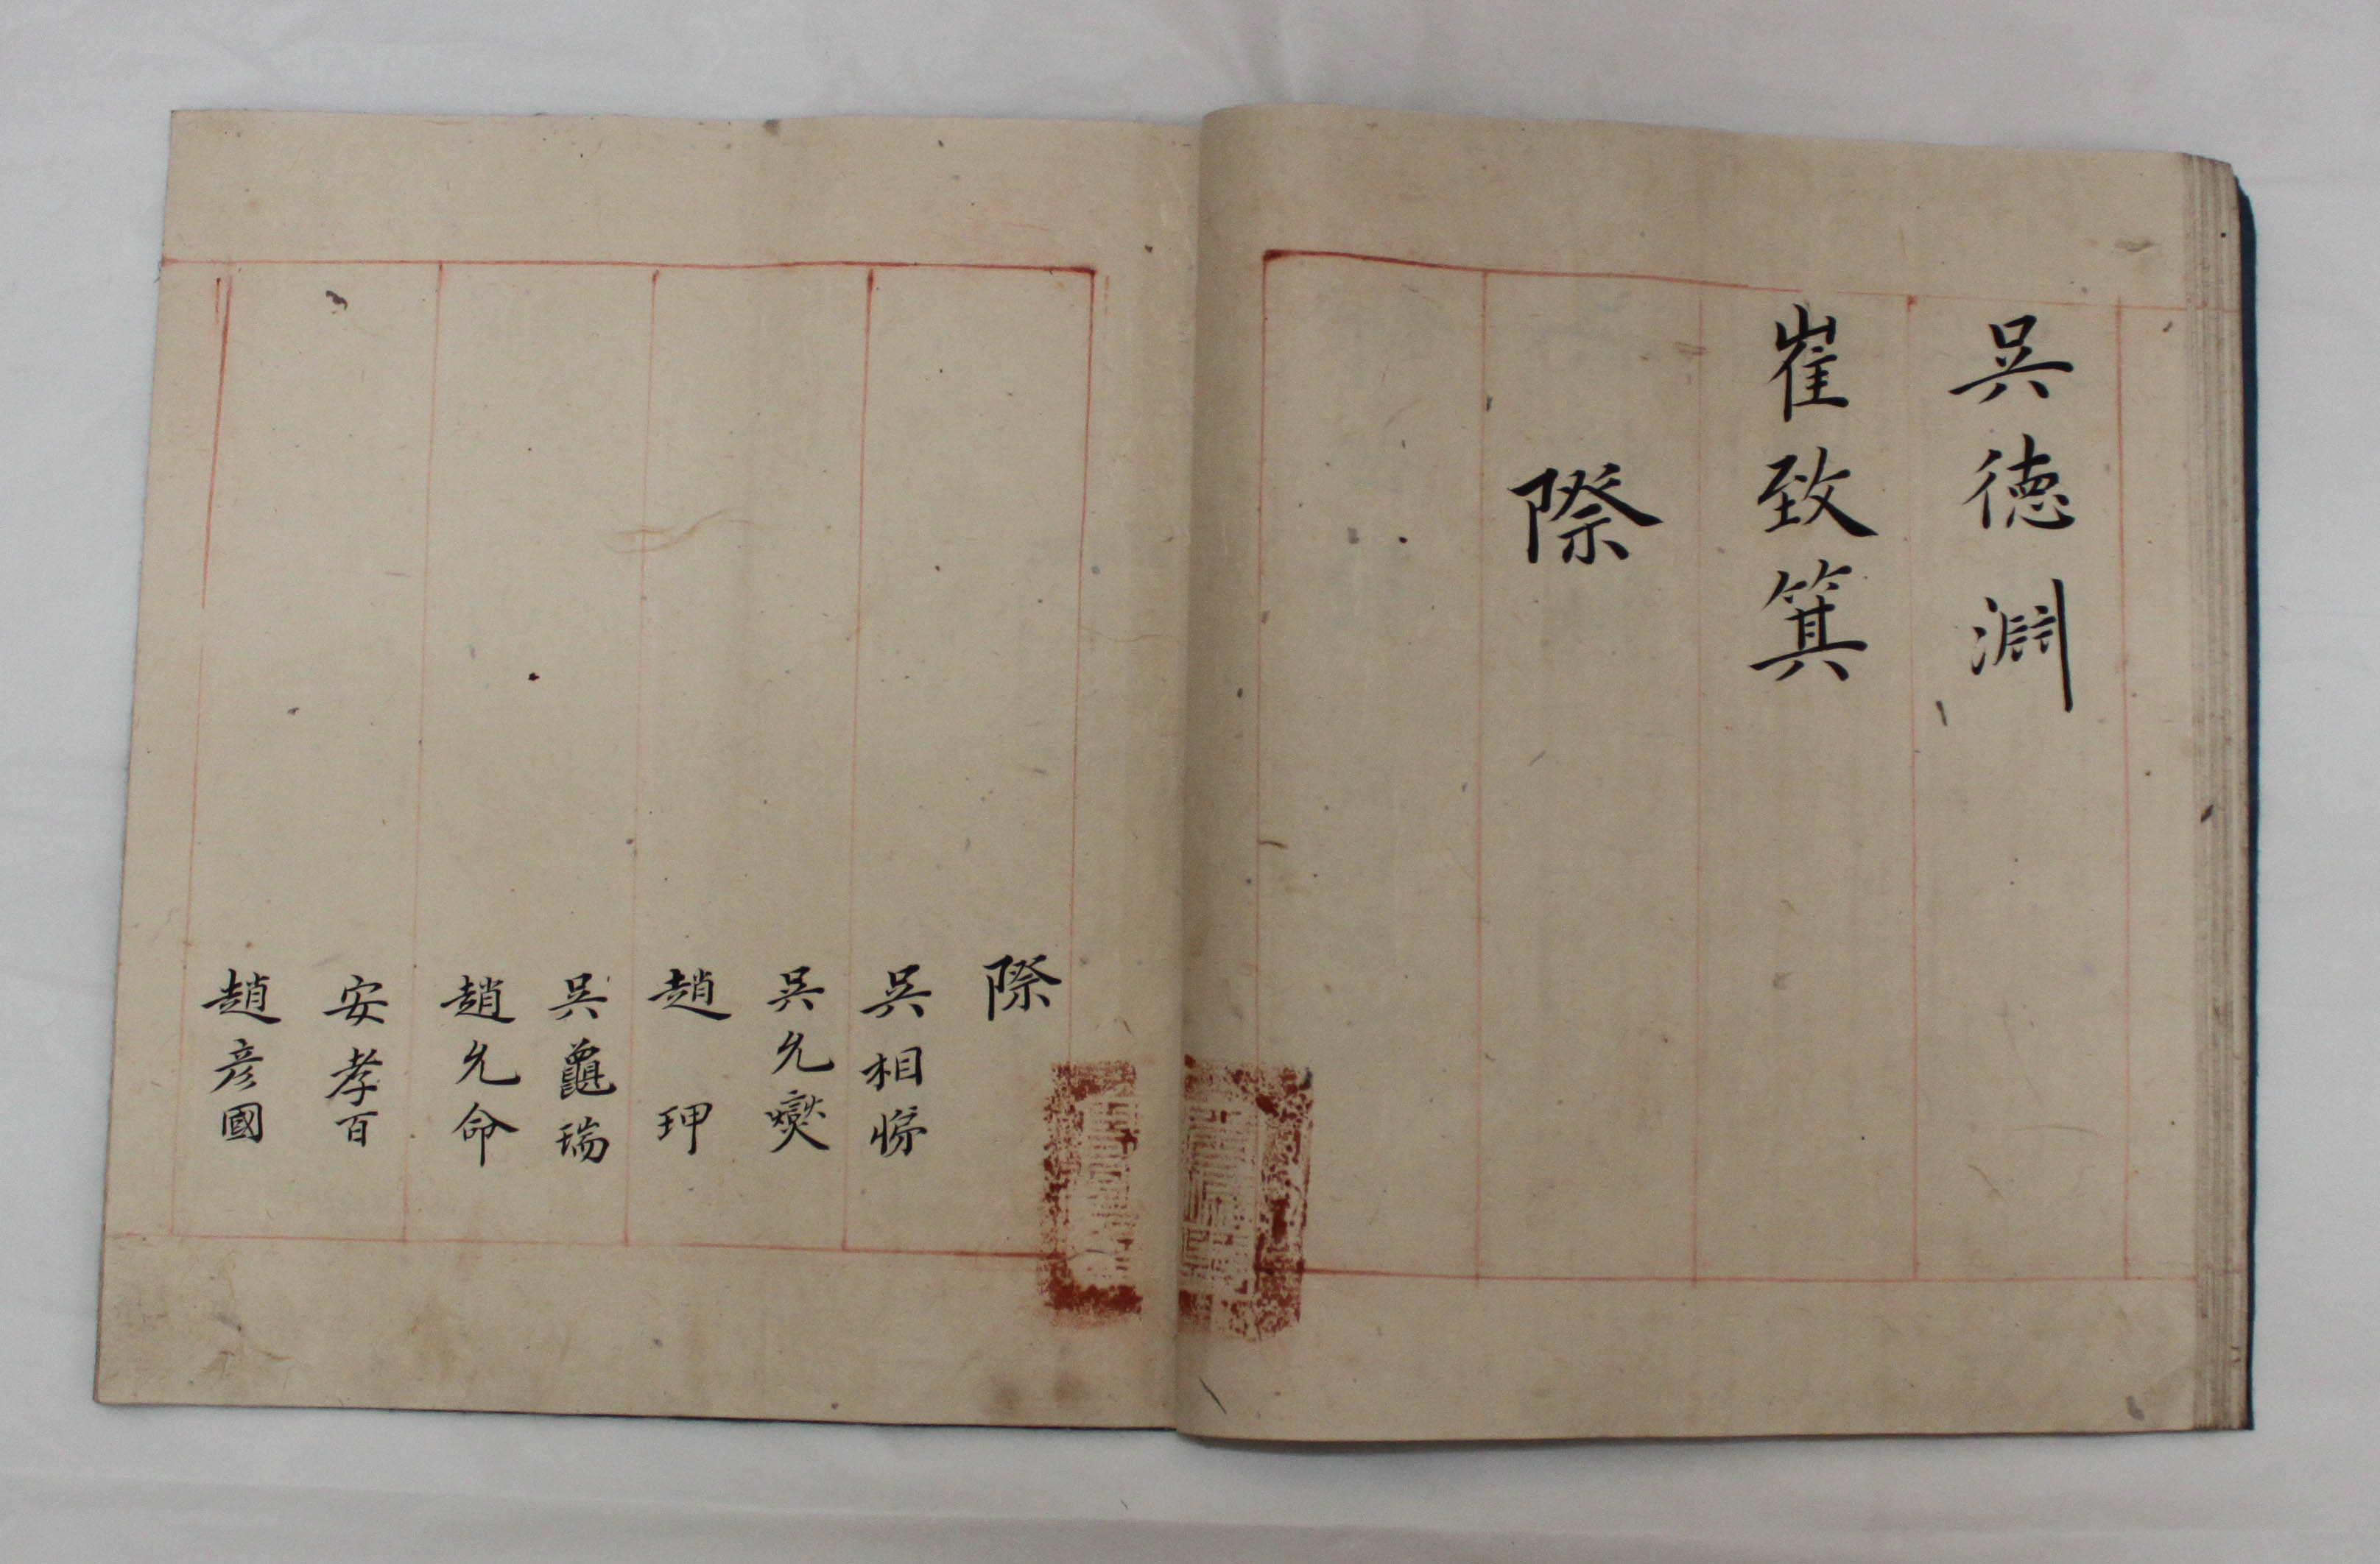 吳德淵
崔致箕
際
際
吳相
吳允燮
趙玾
吳龜瑞
趙允命
安孝百
趙彦國